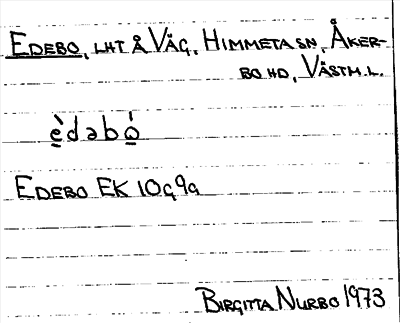 EDEBO, LHT Å VÄG, HIMMETA SN, ÅKER-
BO HD, VÄSTM.L.
è̲dəbó̲
EDEBO EK 10g9a
BIRGITTA NURBO 1973